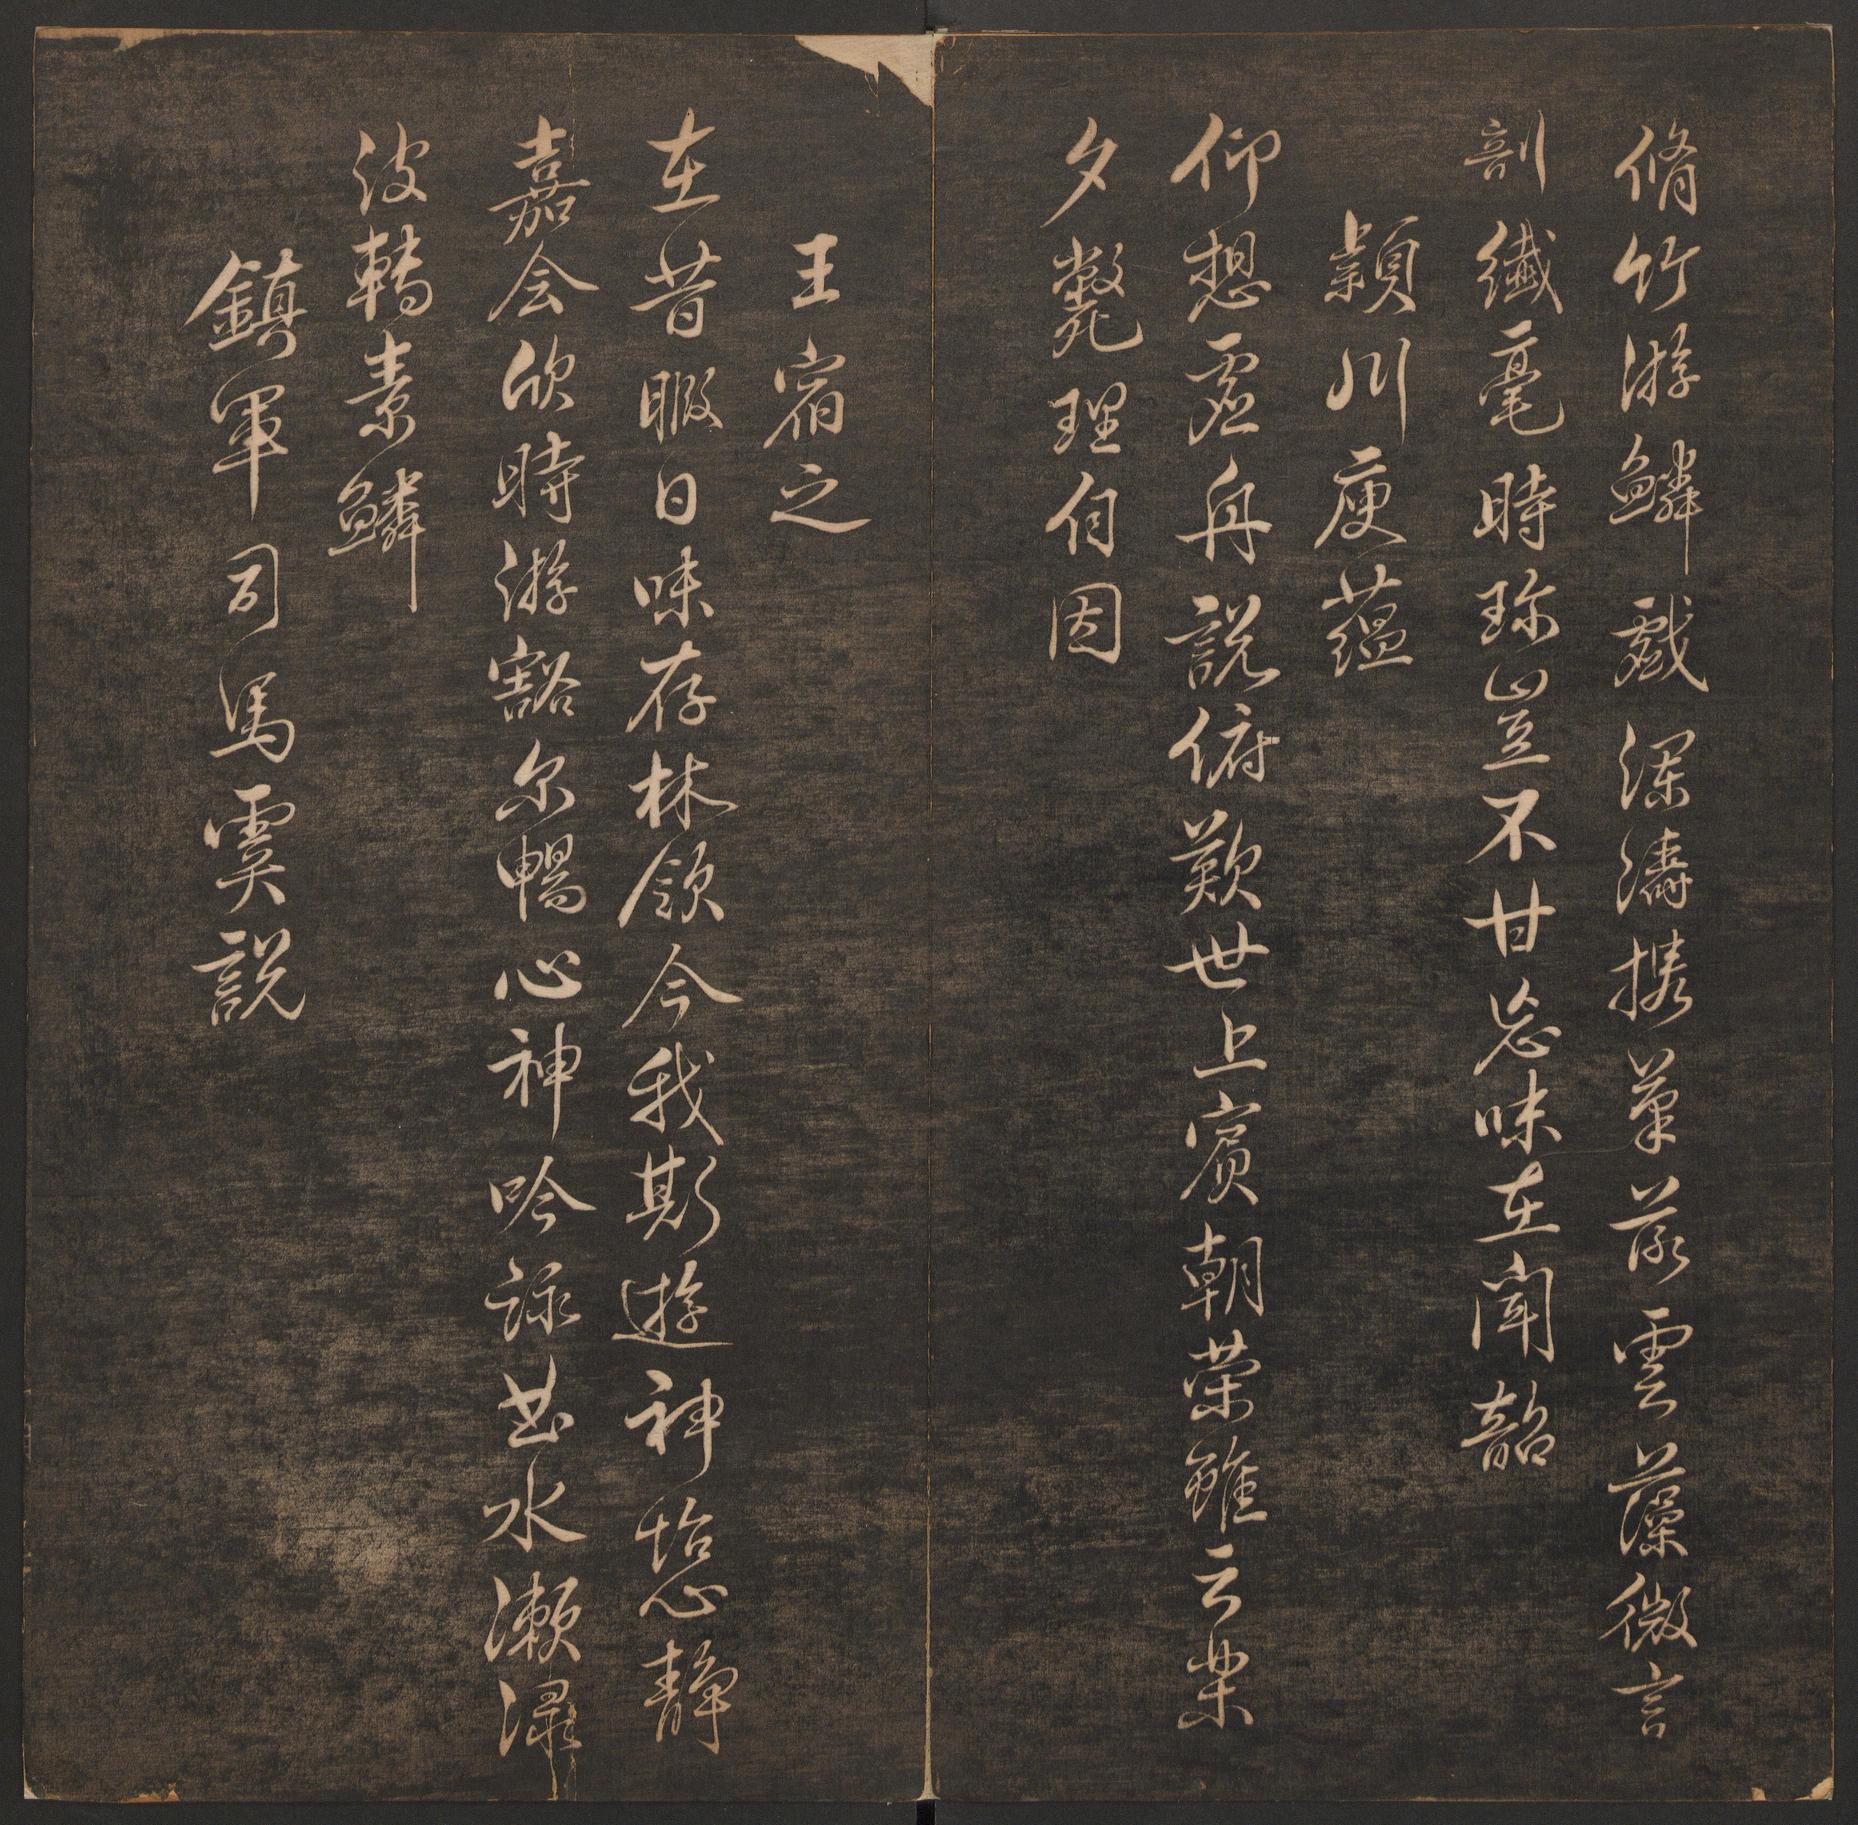 脩竹游鱗戲瀾濤携筆落雲藻微言
剖纖毫時珎豈不甘忘味在聞韶
潁川庾蘊
仰想虛舟說俯歎世上賓朝榮雖云樂
夕斃理自因
王宿之
在昔暇日味存林領今我斯遊神怡心靜
嘉会欣時游豁尔暢心神吟詠曲水瀨渌
波轉素鱗
鎮軍司馬虞說